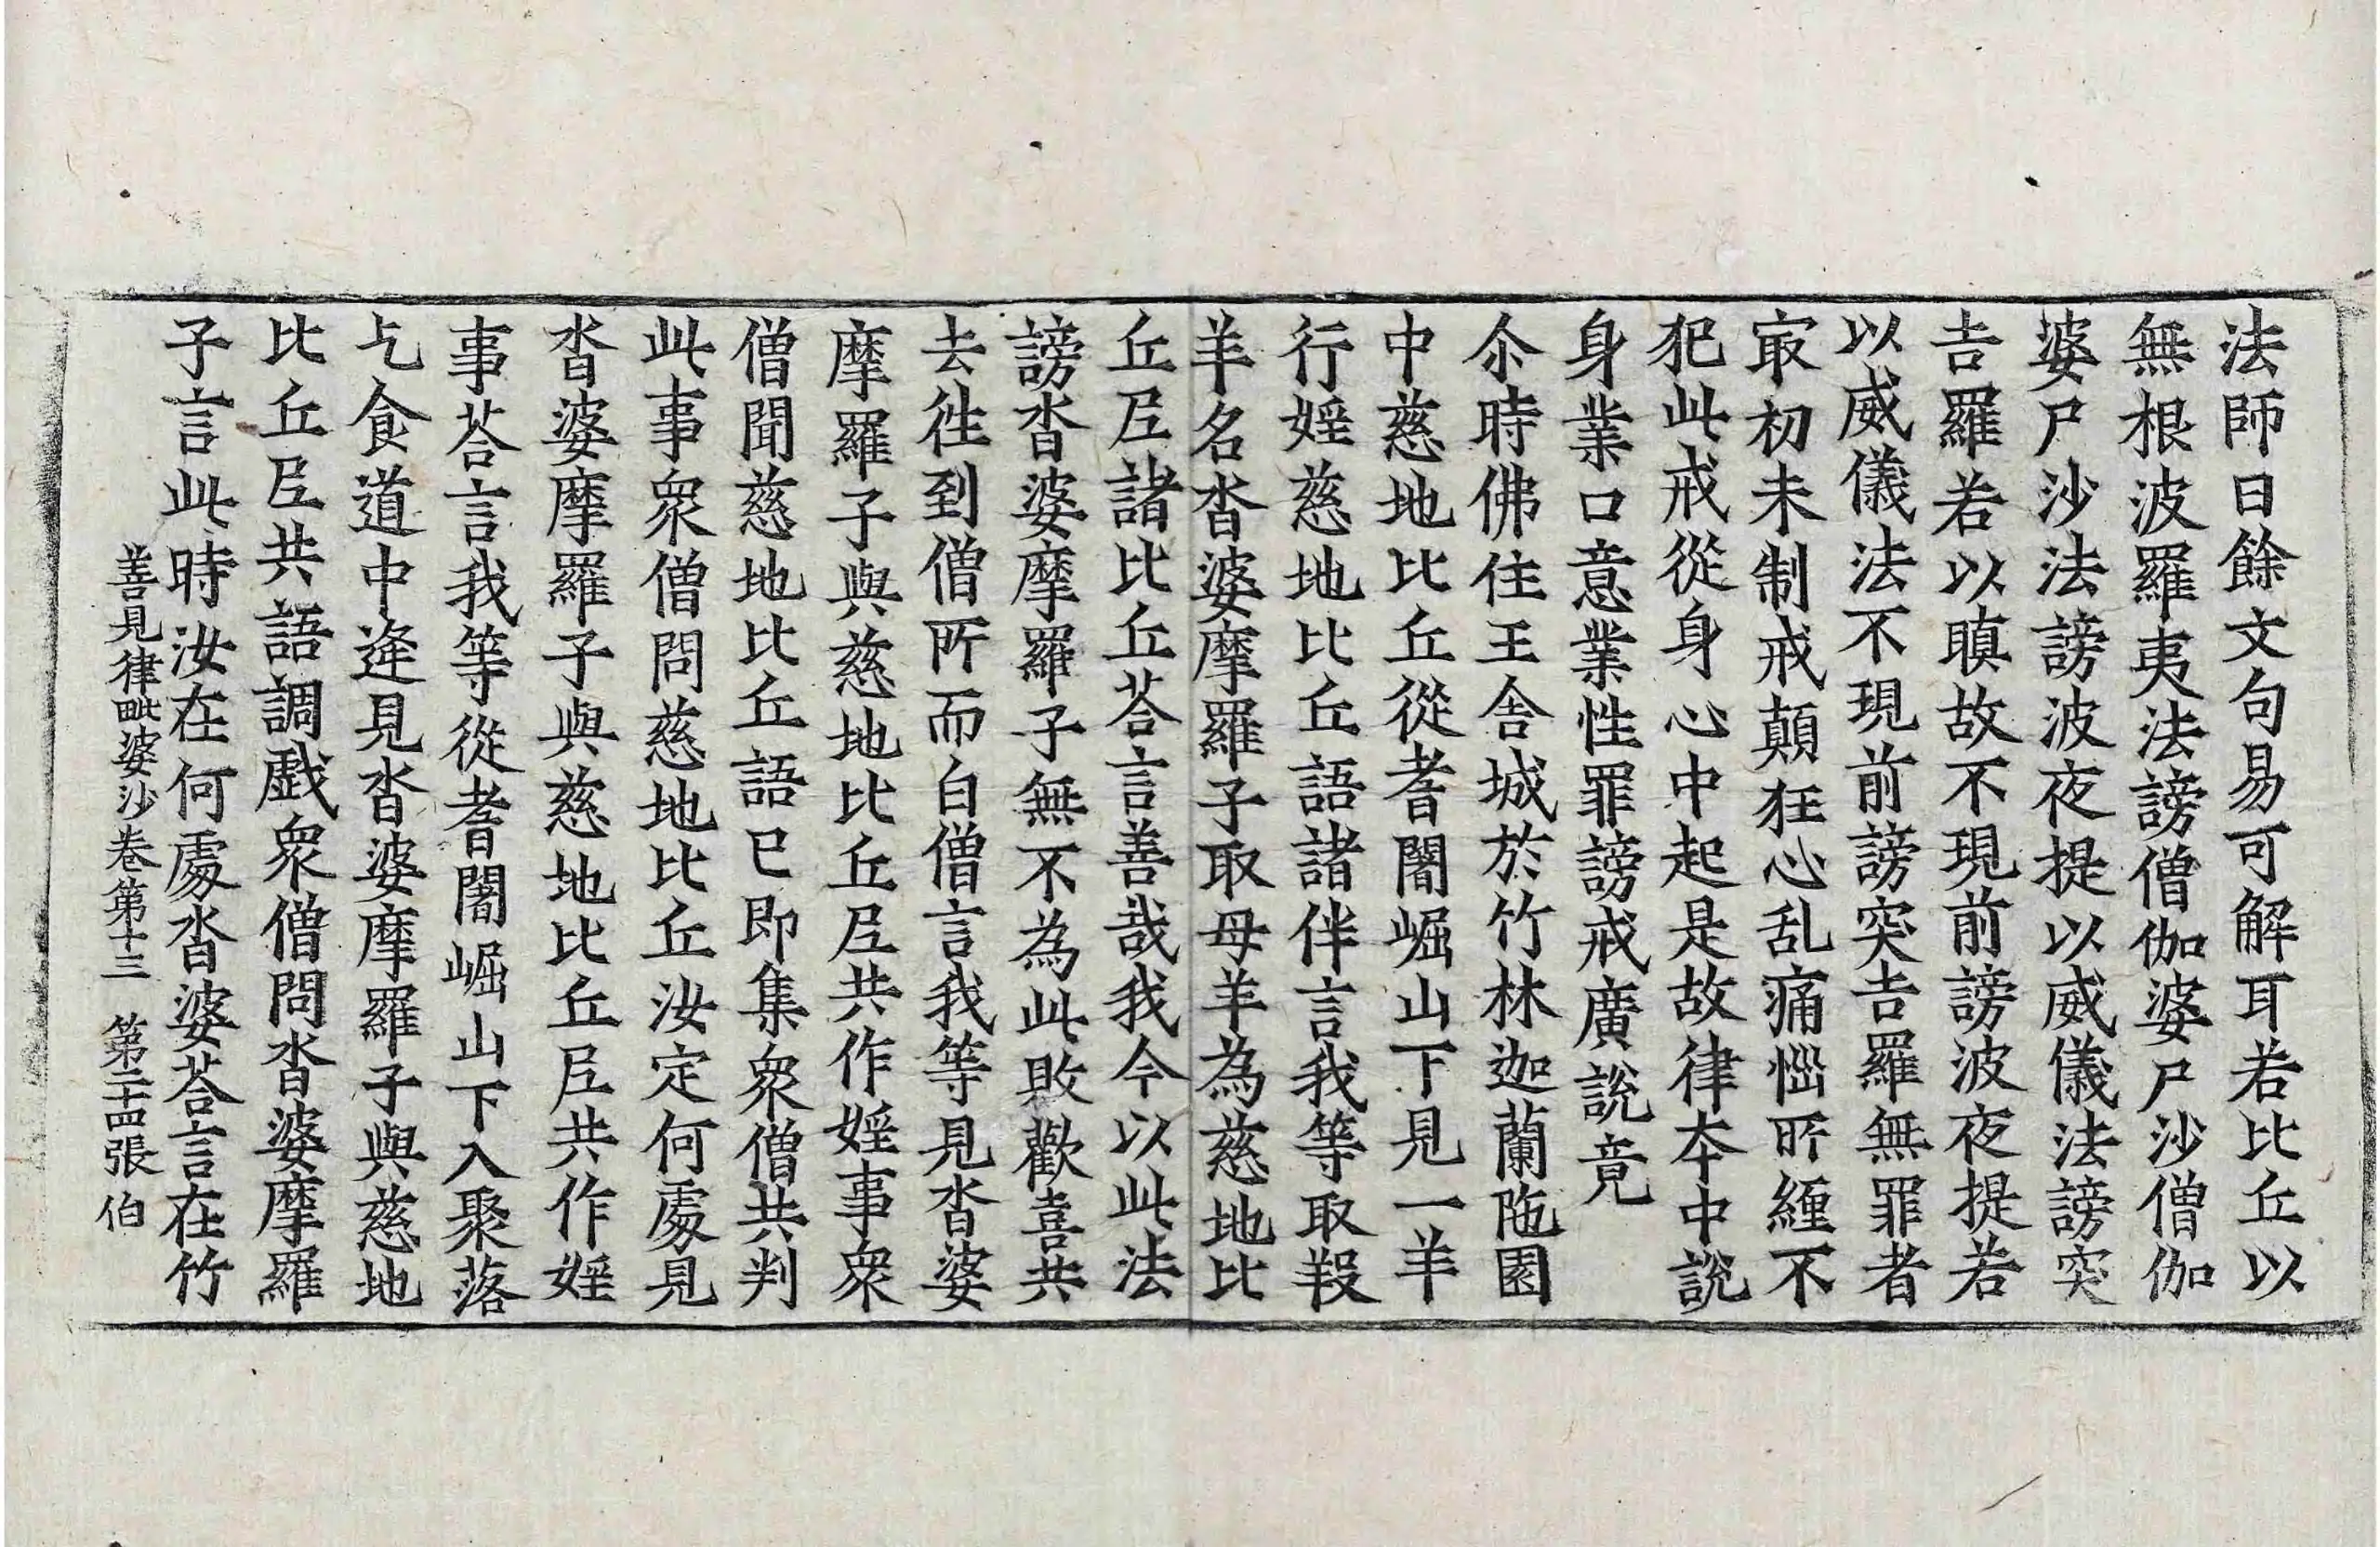 法師曰餘文句易可解耳若比丘以
無根波羅夷法謗僧伽婆尸沙僧伽
婆尸沙法謗波夜提以威儀法謗突
吉羅若以瞋故不現前謗波夜提若
以威儀法不現前謗突吉羅無罪者
㝡初未制戒顛狂心乱痛惱所纏不
犯此戒從身心中起是故律夲中說
身業口意業性罪謗戒廣說竟
尒時佛住王舍城於竹林迦蘭陁園
中慈地比丘從耆闍崛山下見一羊
行婬慈地比丘語諸伴言我等取羖
羊名沓婆摩羅子取母羊為慈地比
丘尼諸比丘荅言善哉我今以此法
謗沓婆摩羅子無不為此敗歡喜共
去徃到僧所而白僧言我等見沓婆
摩羅子與慈地比丘尼共作婬事衆
僧聞慈地比丘語已即集衆僧共判
此事衆僧問慈地比丘汝定何處見
沓婆摩羅子與慈地比丘尼共作婬
事荅言我等從耆闍崛山下入聚落
乞食道中逄見沓婆摩羅子與慈地
比丘尼共語調戯衆僧問沓婆摩羅
子言此時汝在何處沓婆荅言在竹
善見律毗婆沙卷第十三 第二十四張 伯